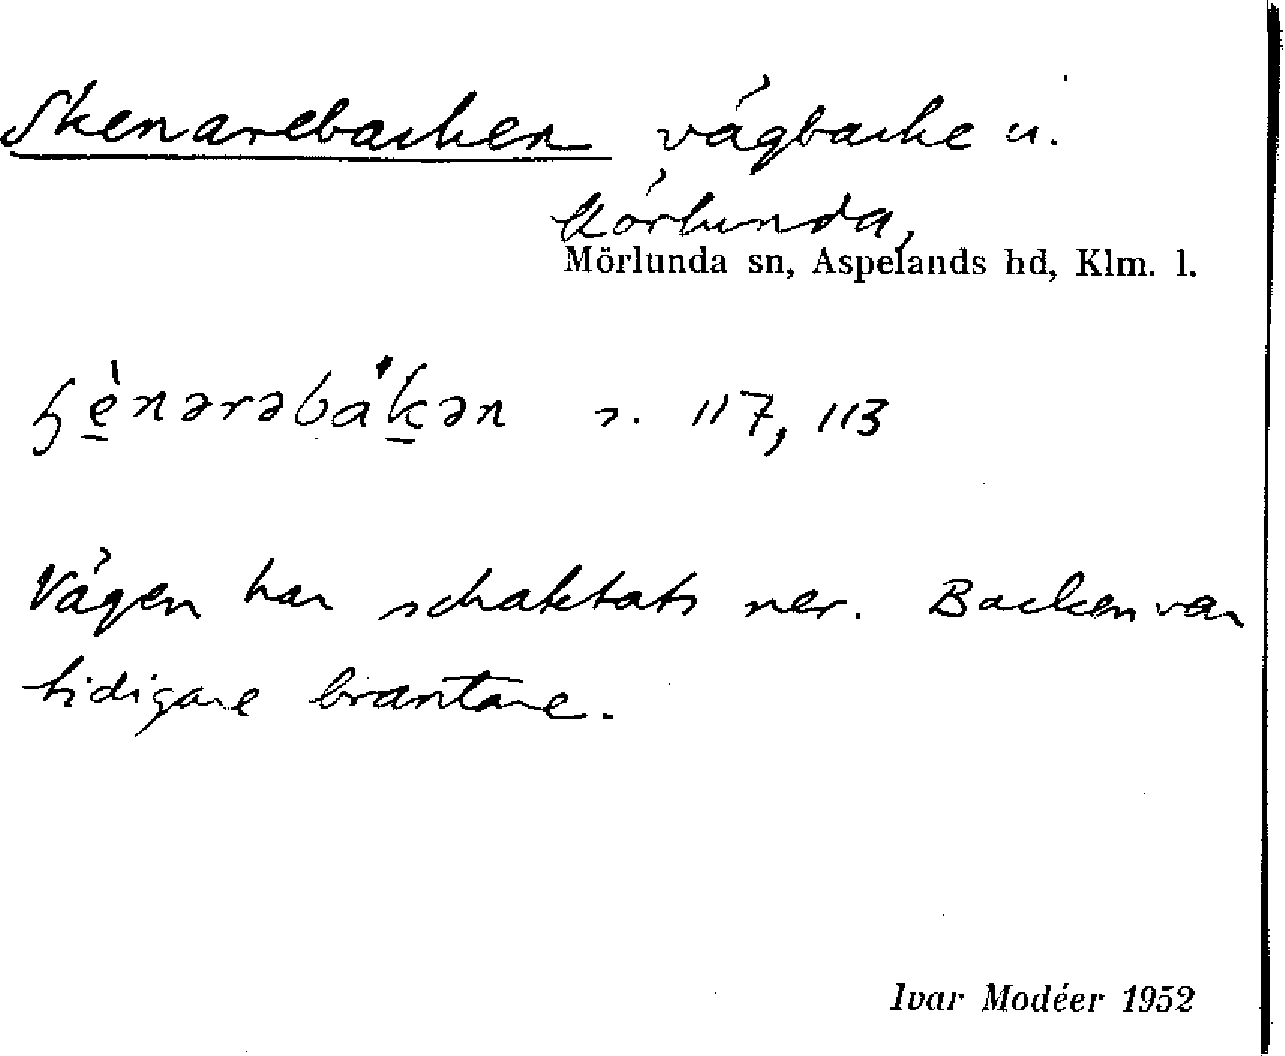 Skenarebacken vägbacke u.
Mörlunda,
Mörlunda sn, Aspelands hd, Klm. l.
s. 117, 113
Vägen har schaktats ner. Backen var
tidigare brantare.
Ivar Modéer 1952